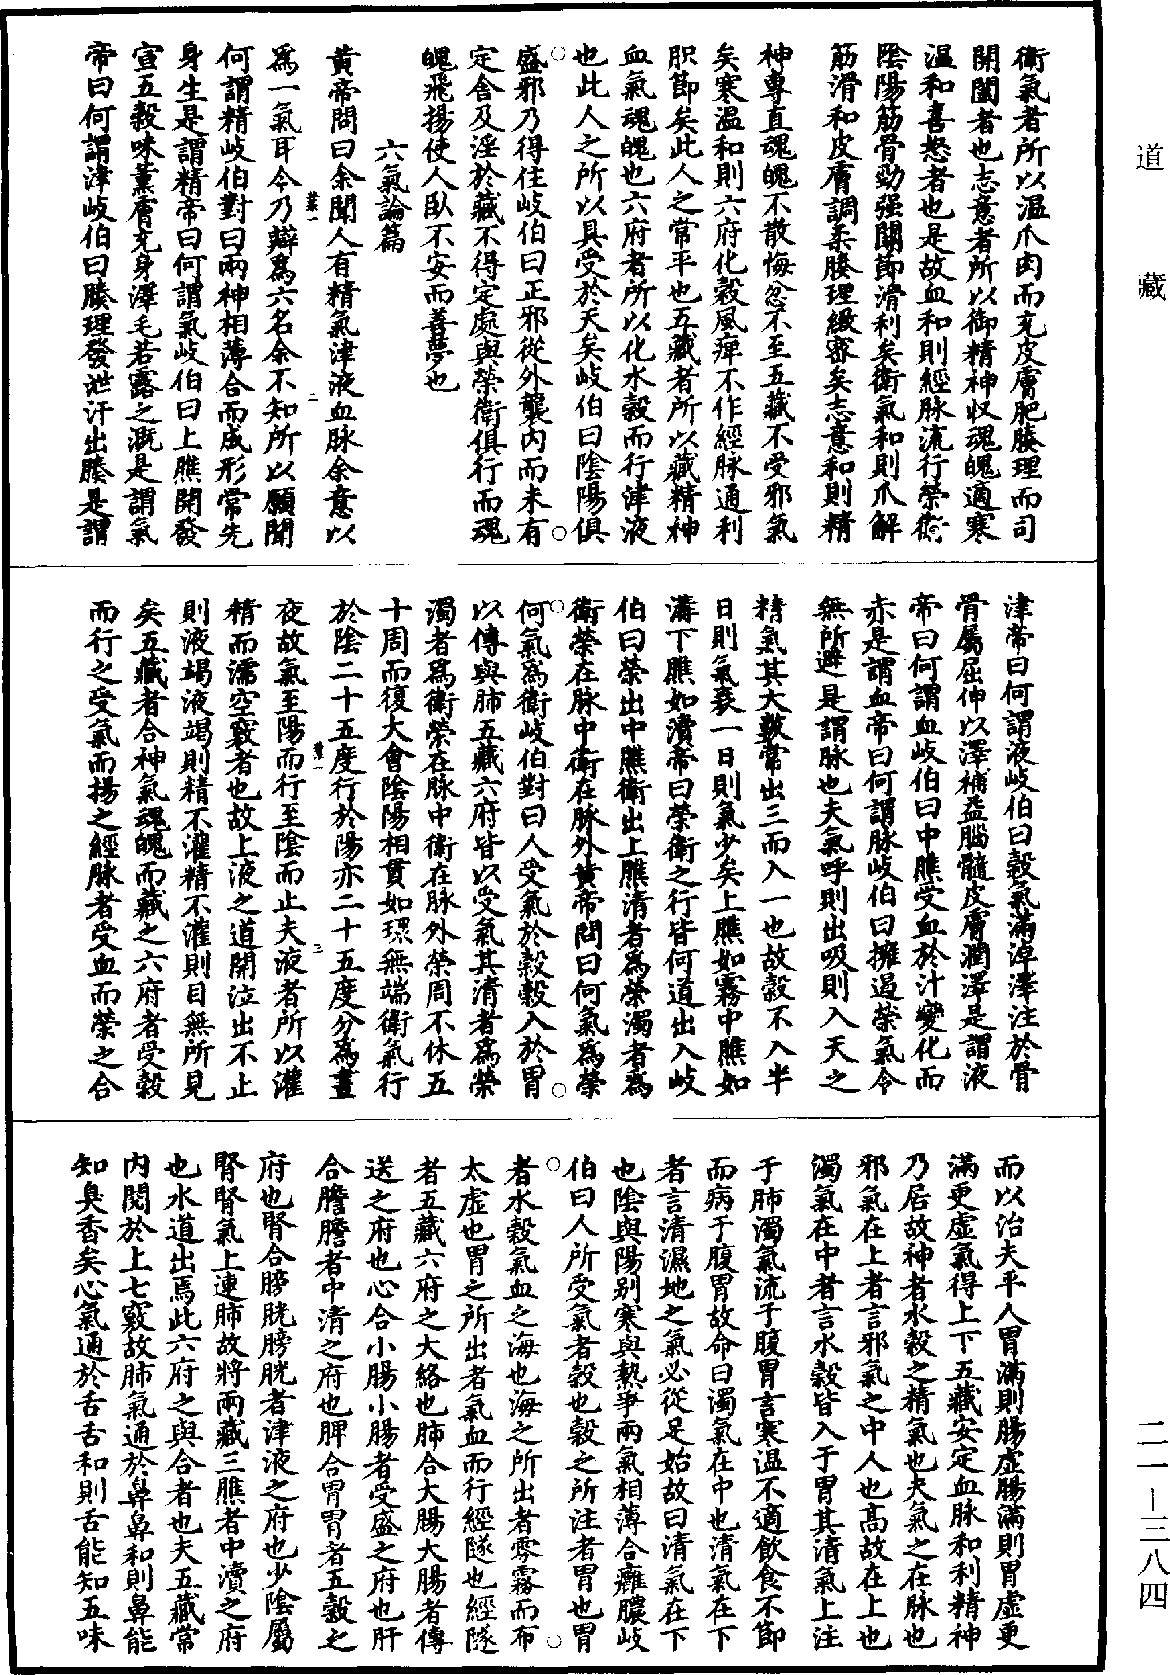 道藏
二一—三八四
衛氣者所以温爪肉而充皮膚肥腠理而司
開闔者也志意者所以御精神収魂魄適寒
温和喜怒者也是故血和則經脉流行榮衛
陰陽筋骨勁强關節滑利矣衛氣和則爪解
筋滑和皮膚調柔腠理緻審矣志意和則精
神專直魂魄不散悔忿不至五藏不受邪氣
矣寒温和則六府化穀風痺不作經脉通利
胑節矣此人之常平也五藏者所以藏精神
血氣魂魄也六府者所以化水穀而行津液
也此人之所以具受於天矣岐伯曰陰陽俱
盛邪乃得住岐伯曰正邪從外襲内而未有
定舍及淫於藏不得定處與榮衛俱行而魂
魄飛揚使人臥不安而善夢也
六氣論篇
黄帝問曰余聞人有精氣津液血脉余意以
爲一氣耳今乃辯爲六名余不知所以願聞
何謂精岐伯對曰兩神相薄合而成形常先
身生是謂精帝曰何謂氣岐伯曰上膲開發
宣五穀味薰膚充身澤毛若露之溉是謂氣
帝曰何謂津岐伯曰腠理發泄汗出腠是謂
津帝曰何謂液岐伯曰穀氣滿淖澤注於骨
骨屬屈伸以澤補益腦髓皮膚潤澤是謂液
帝曰何謂血岐伯曰中膲受血於汁變化而
赤是謂血帝曰何謂脉岐伯曰擁遏榮氣令
無所避是謂脉也夫氣呼則出吸則入天之
精氣其大數常出三而入一也故穀不入半
日則氣衰一日則氣少矣上膲如霧中膲如
溝下膲如瀆帝曰榮衛之行皆何道出入岐
伯曰榮出中膲衛出上膲清者爲榮濁者爲
衛榮在脉中衛在脉外黄帝問曰何氣爲榮
何氣爲衛岐伯對曰人受氣於穀穀入於胃
以傳與肺五藏六府皆以受氣其清者爲榮
濁者爲衛榮在脉中衛在脉外榮周不休五
十周而復大會陰陽相貫如環無端衛氣行
於陰二十五度行於陽亦二十五度分爲晝
夜故氣至陽而行至陰而止夫液者所以灌
精而濡空竅者也故上液之道開泣出不止
則液竭液竭則精不灌精不灌則目無所見
矣五藏者合神氣魂魄而藏之六府者受穀
而行之受氣而揚之經脉者受血而榮之合
而以治夫平人胃滿則腸虚腸滿則胃虚更
滿更虚氣得上下五藏安定血脉和利精神
乃居故神者水穀之精氣也夫氣之在脉也
邪氣在上者言邪氣之中人也高故在上也
濁氣在中者言水穀皆入于胃其清氣上注
于肺濁氣流于腹胃言寒温不適飲食不節
而病于腹胃故命曰濁氣在中也清氣在下
者言清濕地之氣必從足始故曰清氣在下
也陰與陽别寒與熱爭兩氣相薄合癰膿岐
伯曰人所受氣者穀也穀之所注者胃也胃
者水穀氣血之海也海之所出者雰霧而布
太虚也胃之所出者氣血而行經隧也經隧
者五藏六府之大絡也肺合大腸大腸者傳
送之府也心合小腸小腸者受盛之府也肝
合膽膽者中清之府也脾合胃胃者五穀之
府也腎合膀胱膀胱者津液之府也少陰屬
腎腎氣上連肺故將兩藏三膲者中瀆之府
也水道出焉此六府之與合者也夫五藏常
内閲於上七竅故肺氣通於鼻鼻和則鼻能
知臭香矣心氣通於舌舌和則舌能知五味